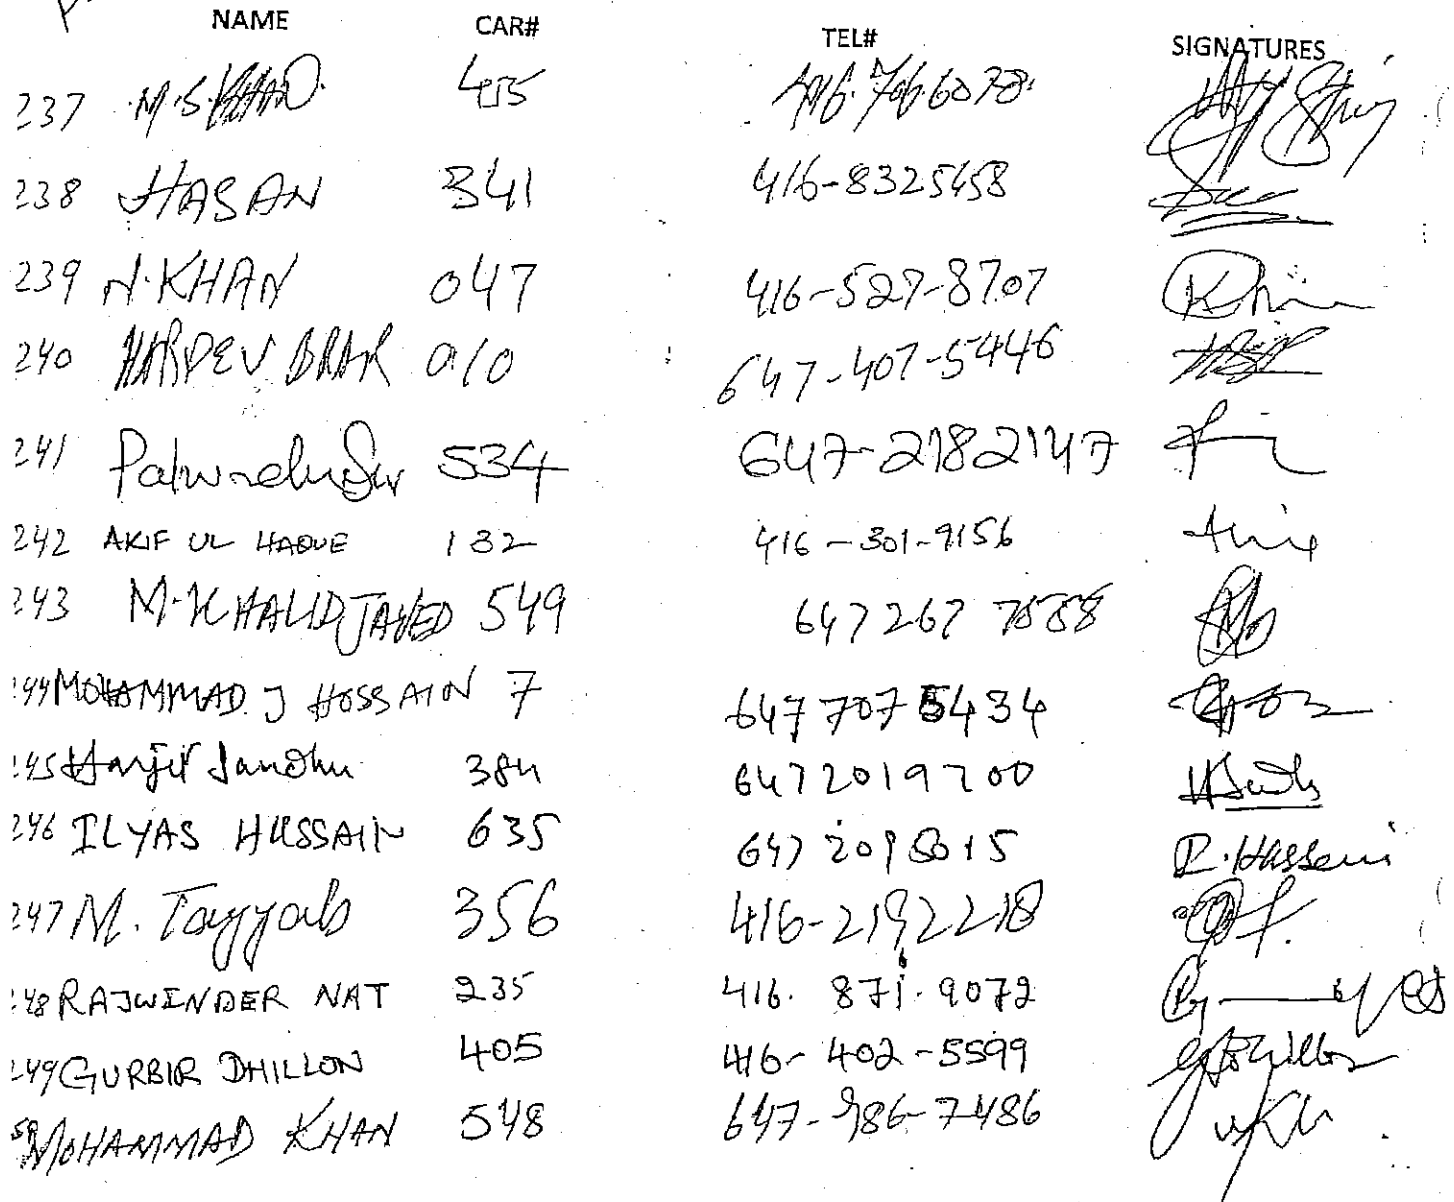 NAME CAR# TEL# SIGNATURES
237 M.S. 455 416.706.6078
238 HASAN 341 416-8325458
239 N.KHAN 047 416-527-8707
240 HARDEV BRAR 010 647-407-5446
241 534 647-2182147
242 AKIF UL HAQUE 132 416-301-9156
243 M.KHALID JAVED 549 647 267 7588
244 MOHAMMAD J HOSSAIN 7 647 707 5434
245 Harjit Sandhu 384 647 2019700
246 ILYAS HUSSAIN 635 647 2098015 R.Hasseni
247 M. Tayyab 356 416-2192218
248 RAJWINDER NAT 235 416. 871.9072
249 GURBIR DHILLON 405 416-402-5599
50 MOHAMMAD KHAN 548 647-986-7486